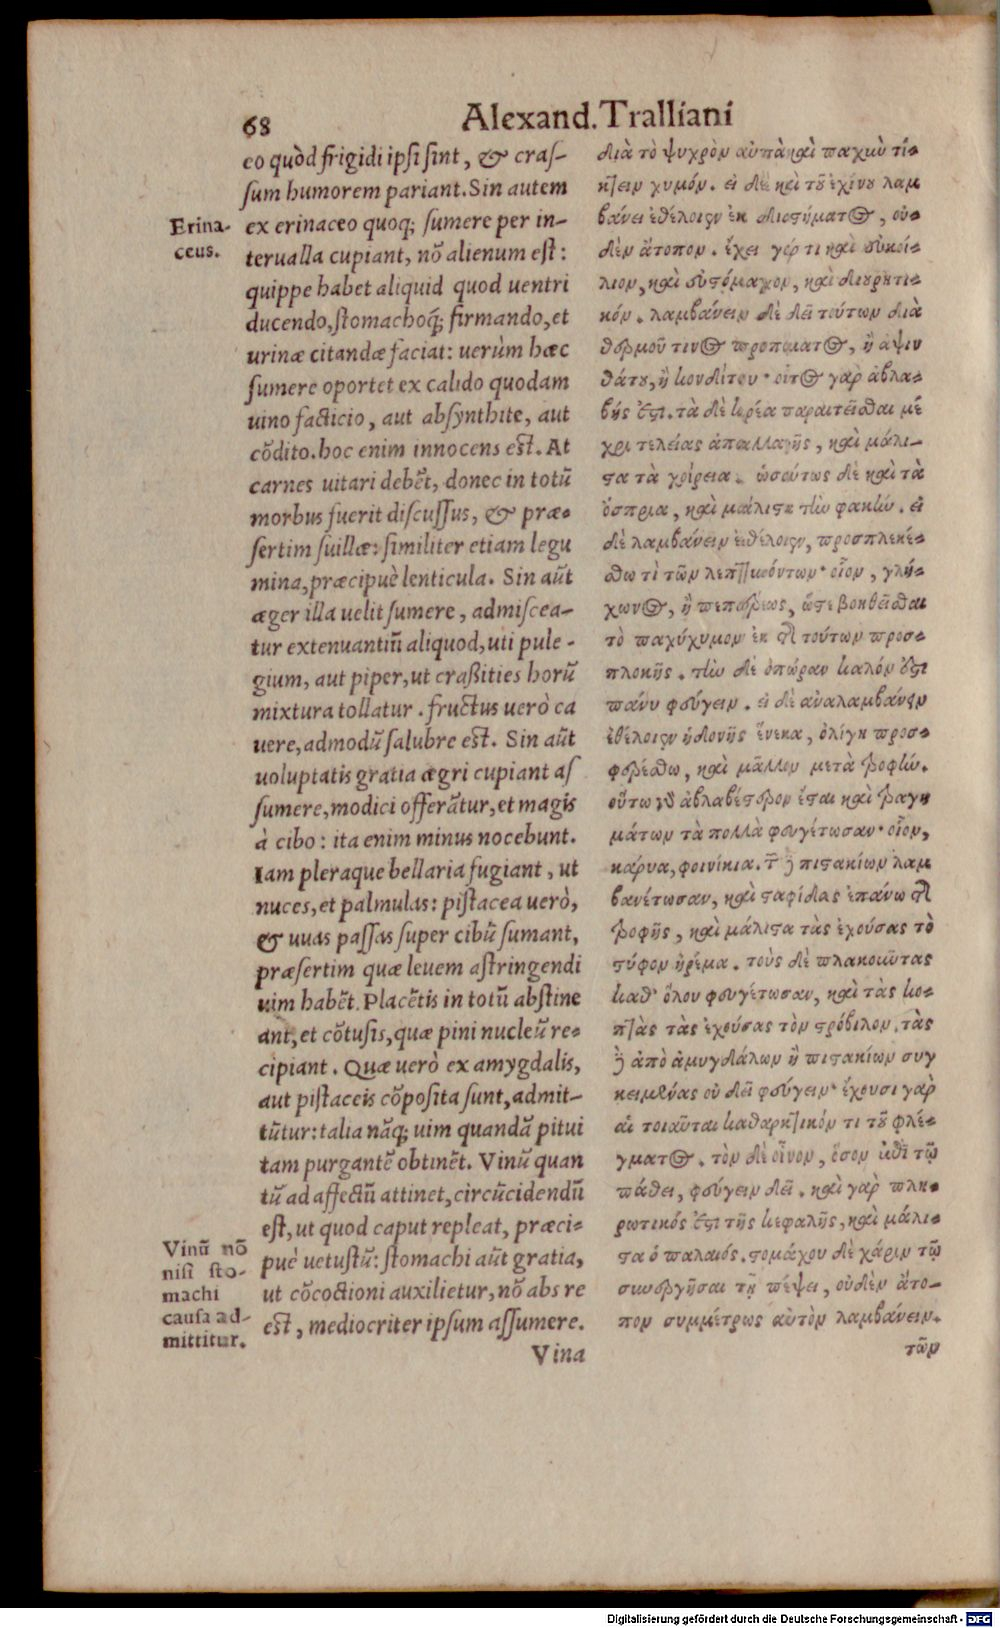 68
Alexand. Tralliani
eo quòd frigidi ipsi sint, & cras-
sum humorem pariant. Sin autem
Erina-
ceus.
ex erinaceo quoq; sumere per in-
terualla cupiant, nō alienum est:
quippe habet aliquid quod uentri
ducendo, stomachoq́; firmando, et
urinæ citandæ faciat: uerùm hæc
sumere oportet ex calido quodam
uino facticio, aut absynthite, aut
cōdito. hoc enim innocens est. At
carnes uitari debēt, donec in totū
morbus fuerit discussus, & præ-
sertim suillæ: similiter etiam legu
mina, præcipuè lenticula. Sin aūt
æger illa uelit sumere, admiscea-
tur extenuantiū aliquod, uti pule-
gium, aut piper, ut crassities horū
mixtura tollatur. fructus uerò ca
uere, admodū salubre est. Sin aūt
uoluptatis gratia ægri cupiant as
sumere, modici offerātur, et magis
à cibo: ita enim minus nocebunt.
Iam pleraque bellaria fugiant, ut
nuces, et palmulas: pistacea uerò,
& uuas passas super cibū sumant,
præsertim quæ leuem astringendi
uim habēt. Placētis in totū abstine
ant, et cōtusis, quæ pini nucleū re-
cipiant. Quæ uerò ex amygdalis,
aut pistaceis cōposita sunt, admit-
tūtur: talia nāq; uim quandā pitui
tam purgantē obtinēt. Vinū quan
tū ad affectū attinet, circūcidendū
est, ut quod caput repleat, præci-
puè uetustū: stomachi aūt gratia,
ut cōcoctioni auxilietur, nō abs re
est, mediocriter ipsum assumere.
Vinū nō
nisi sto-
machi
causa ad-
mittitur.
Vina
διὰ τὸ ψυχρὸν αὐτὰ καὶ παχιὺ τί-
κτειν χυμόν. εἰ δὲ καὶ τοῦ ἐχίνου λαμ
βάνει ἐθέλοιεν ἐκ διαστήματος, οὐ-
δὲν ἄτοπον. ἔχει γάρ τι καὶ εὐκοί-
λιον, καὶ εὐστόμαχον, καὶ διουρητι-
κόν. λαμβάνειν δὲ δεῖ τούτων διὰ
θερμοῦ τινος προπόματος, ἢ ἀψιν
θάτου, ἢ κονδίτου· οὗτος γὰρ ἀβλα-
βής ἐστι. τὰ δὲ κρέα παραιτεῖσθαι μέ
χρι τελείας ἀπαλλαγῆς, καὶ μάλι-
στα τὰ χοίρεια. ὡσαύτως δὲ καὶ τὰ
ὄσπρια, καὶ μάλιστα τὴν φακήν. εἰ
δὲ λαμβάνειν ἐθέλοιεν, προσπλεκέ-
σθω τὶ τῶν λεπτυνόντων· οἷον, γλή-
χωνος, ἢ πεπέρεως, ὥστε βοηθεῖσθαι
τὸ παχύχυμον ἐκ τῆς τούτων προσ-
πλοκῆς. τὴν δὲ ὀπώραν καλόν ἐστι
πάνυ φεύγειν. εἰ δὲ ἀναλαμβάνειν
ἐθέλοιεν ἡδονῆς ἕνεκα, ὀλίγη προσ-
φερέσθω, καὶ μᾶλλον μετὰ ῥοφήν.
οὕτω γὰρ ἀβλαβέστερον ἔσται καὶ τραγη
μάτων τὰ πολλὰ φευγέτωσαν· οἷον,
κάρυα, φοινίκια. τῶν δὲ πιστακίων λαμ
βανέτωσαν, καὶ σταφίδας ἐπάνω τῆς
τροφῆς, καὶ μάλιστα τὰς ἐχούσας τὸ
στύφον ἠρέμα. τοὺς δὲ πλακοῦντας
καθ' ὅλου φευγέτωσαν, καὶ τὰς κο-
πτὰς τὰς ἐχούσας τὸν στρόβιλον. τὰς
δὲ ἀπὸ ἀμυγδάλων ἢ πιστακίων συγ
κειμένας οὐ δεῖ φεύγειν· ἔχουσι γὰρ
αἱ τοιαῦται καθαρτικόν τι τοῦ φλέ-
γματος. τὸν δὲ οἶνον, ὅσον ἐπὶ τῷ
πάθει, φεύγειν δεῖ. καὶ γὰρ πλη-
ρωτικός ἐστι τῆς κεφαλῆς, καὶ μάλι-
στα ὁ παλαιός. στομάχου δὲ χάριν τῷ
συνεργῆσαι τῇ πέψει, οὐδὲν ἄτο-
πον συμμέτρως αὐτὸν λαμβάνειν.
τῶν
Digitalisierung gefördert durch die Deutsche Forschungsgemeinschaft - DFG